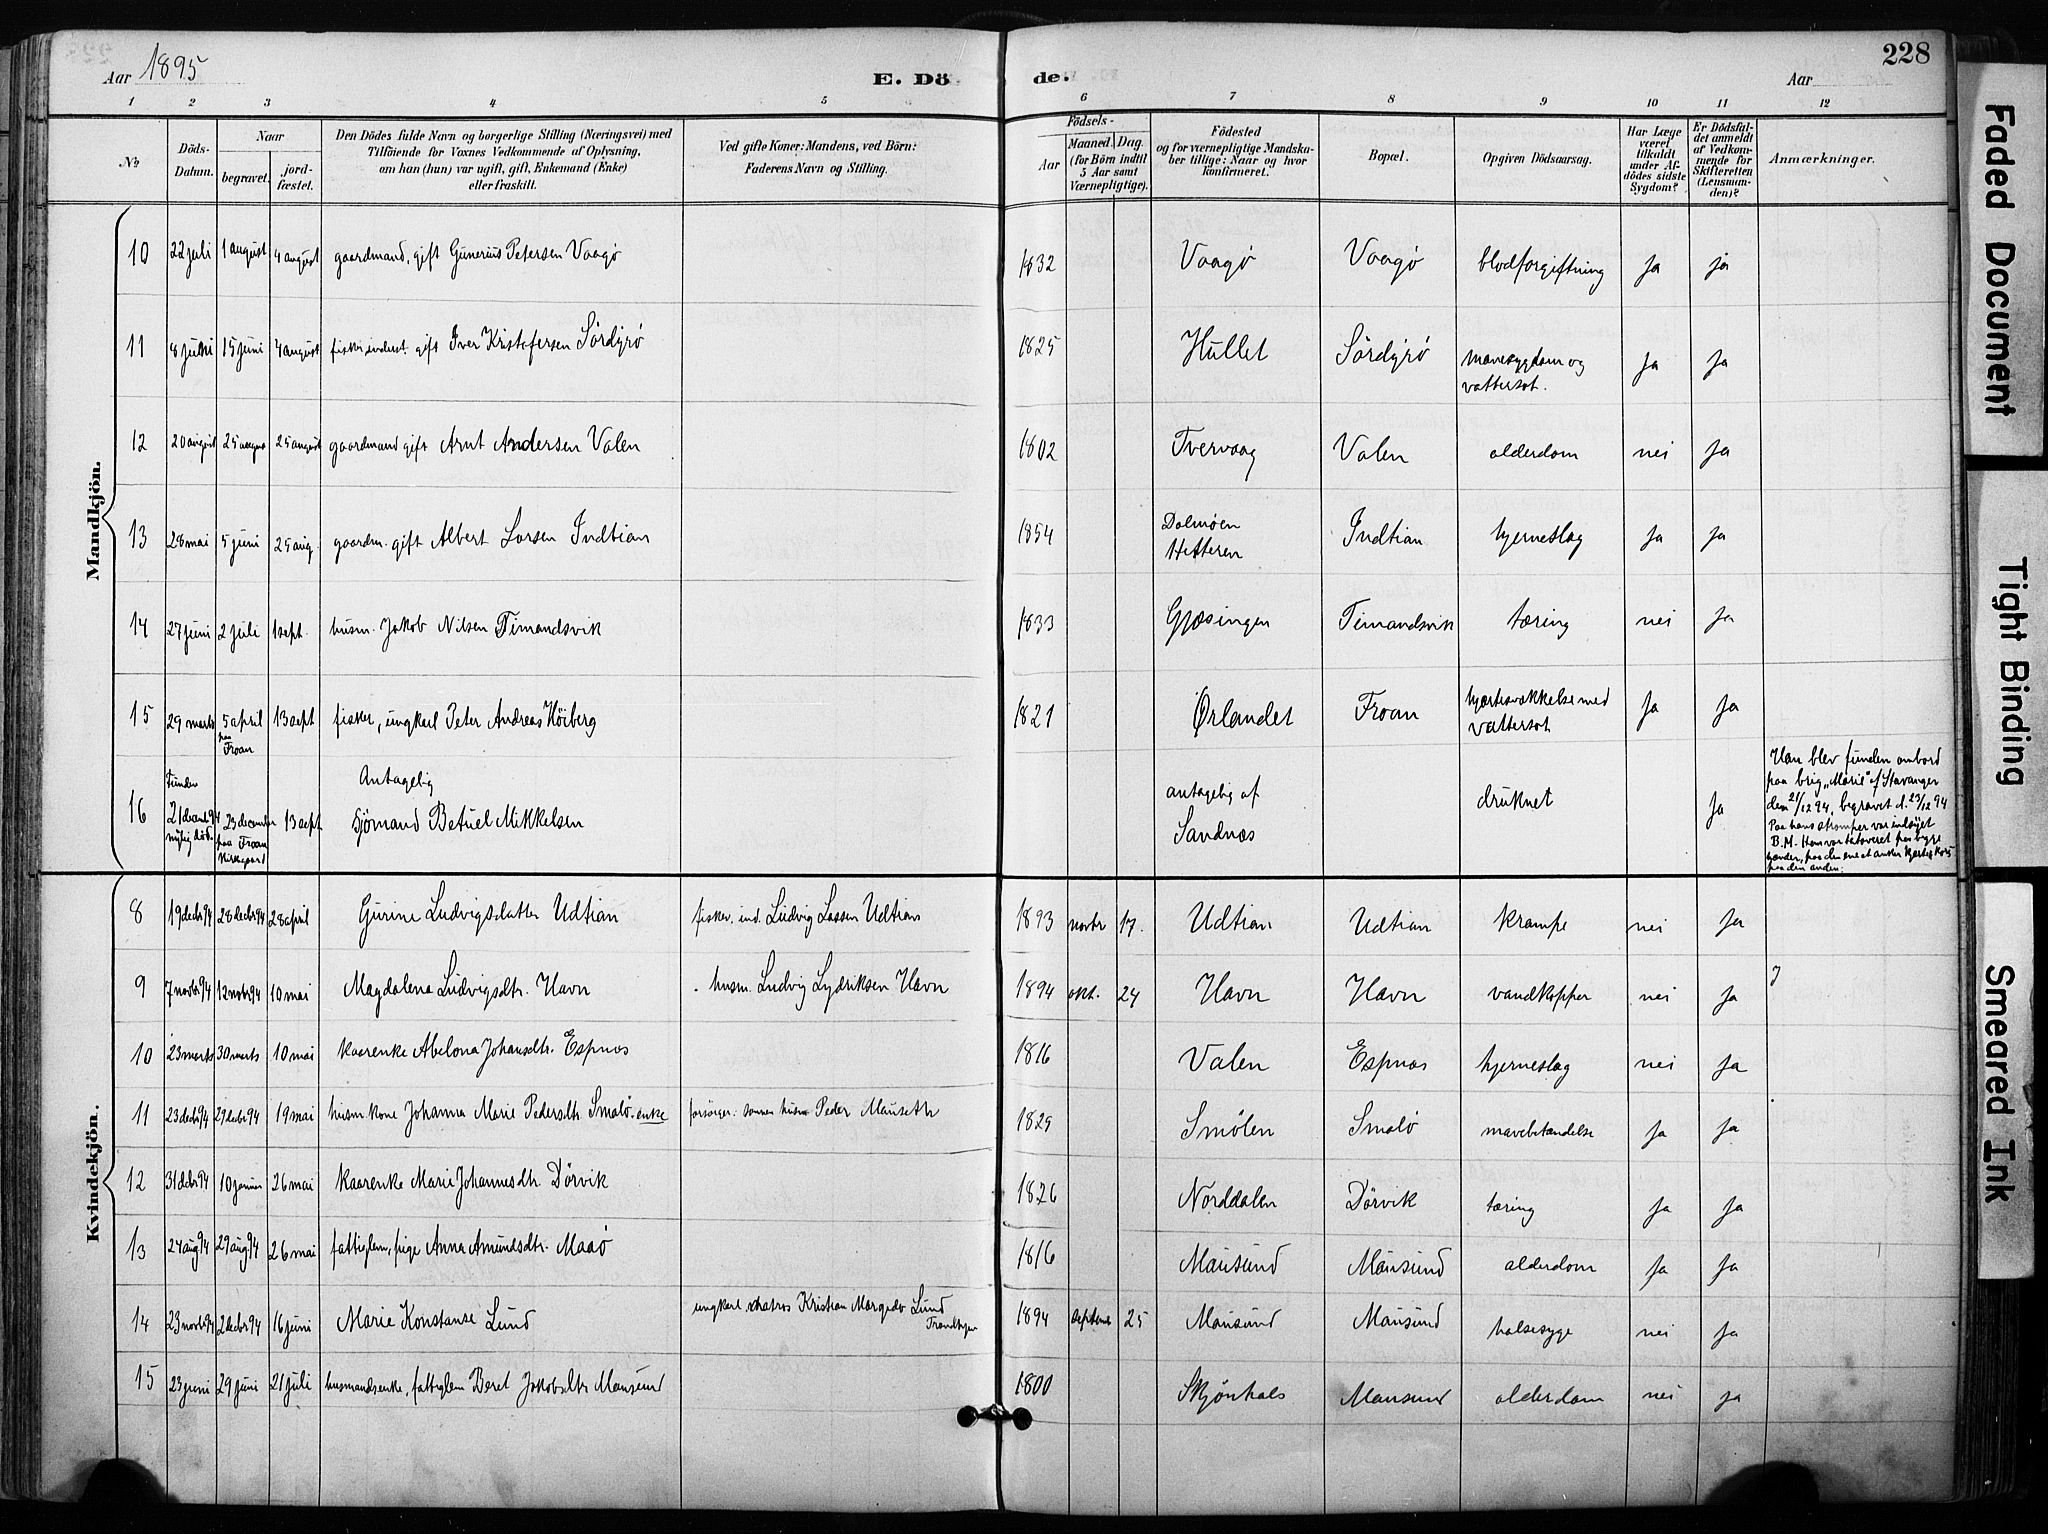 Aar 1895 E. Dö de. Aar 228
1 2 3 4 5 6 7 8 9 10 11 12
№
Döds-Datum.
Naar
begravet. jord-fæstet.
Den Dödes fulde Navn og borgerlige Stilling (Næringsvei) med
Tilföiende for Voxnes Vedkommende af Oplysning,
om han (hun) var ugift, gift, Enkemand (Enke)
eller fraskilt.
Ved gifte Koner: Mandens, ved Börn:
Faderens Navn og Stilling.
Födsels-
Aar Maaned. Dag.
(for Börn indtil
5 Aar samt
Værnepligtige).
Födested
og for værnepligtige Mandska-
ber tillige: Naar og hvor
konfirmeret.
Bopæl.
Opgiven Dödsaarsag.
Har Læge
været
tilkaldt
under Af-
dödes sidste
Sygdom?
Er Dödsfal-
det anmeldt
af Vedkom-
mende for
Skifteretten
(Lensman-
den)?
Anmærkninger.
Mandkjön.
10 22 juli 1 august 4 august gaardmand, gift Gunerius Petersen Vaagø 1832 Vaagø Vaagø blodforgiftning ja ja
11 8 juni 15 juni 4 august fisker, inderst gift Iver Kristofersen Sördyrø 1825 Hullet Sördyrø mavesygdom og vattersot. ja ja
12 20 august 25 august 25 august gaardmand gift Arnt Andersen Valen 1802 Tvervaag Valen alderdom nei ja
13 28 mai 5 juni 25 aug. gaardm. gift Albert Larsen Indtian 1854 Dolmøen Hitteren Indtian hjerneslag ja ja
14 27 juni 2 juli 1 sept. husm. Jakob Nilsen Timandsvik 1833 Gjæsingen Timandsvik tæring nei ja
15 29 marts 5 april paa Froan 13 sept fisker, ungkarl Peter Andreas Höiberg 1821 Ørlandet Froan hjertesvækkelse med vattersot ja ja
16 Funden 21 decemb. 94 nylig död. 23 december paa Froan Kirkegaard 13 sept Antagelig sjömand Betuel Mikkelsen antagelig af Sandnæs druknet ja
Han blev funden ombord
paa brig „Marie" af Stavanger
den 21/12 94, begravet d. 23/12 94
Paa hans strømper var indsyet
B.M. Han var tatoveret paa begge
hænder, paa den ene et anker hjerte & kors
paa den anden.
Kvindekjön.
8 19 decbr 94 28 decbr 94 28 april Gurine Ludvigsdatter Udtian fisker. ind. Ludvig Lassen Udtian 1893 novbr 17. Udtian Udtian krampe nei ja
9 7 novbr 94 12 novbr 94 10 mai Magdalena Ludvigsdtr. Havn husm. Ludvig Lydriksen Havn 1894 okt. 24 Havn Havn vandkopper nei ja
10 23 marts 30 marts 10 mai kaarenke Abelona Johansdtr. Espnæs 1816 Valen Espnæs hjerneslag nei ja
11 23 decbr 94 29 decbr 94 19 mai husm. kone Johanna Marie Pedersdtr. Smalø. enke forsörger: sönnen husm Peder Mauseth 1829 Smölen Smalø mavebetændelse ja ja
12 31 decbr 94 10 januar 26 mai kaarenke Marie Johannesdtr. Dörvik 1826 Norddalen Dörvik tæring ja ja
13 24 aug 94 29 aug 94 26 mai fattiglem, pige Anna Amundsdtr. Maaø 1816 Mausund Mausund alderdom ja ja
14 23 novbr 94 2 decbr 94 16 juni Marie Konstanse Lund ungkarl matros Kristian Lund Trondhjem 1894 25 Mausund Mausund halsesyge nei ja
15 23 juni 29 juni 21 juli husmandsenke, fattiglem Beret Jakobsdtr Mausund 1800 Skjønhals Mausund alderdom nei ja
Faded Document
Tight Binding
Smeared Ink